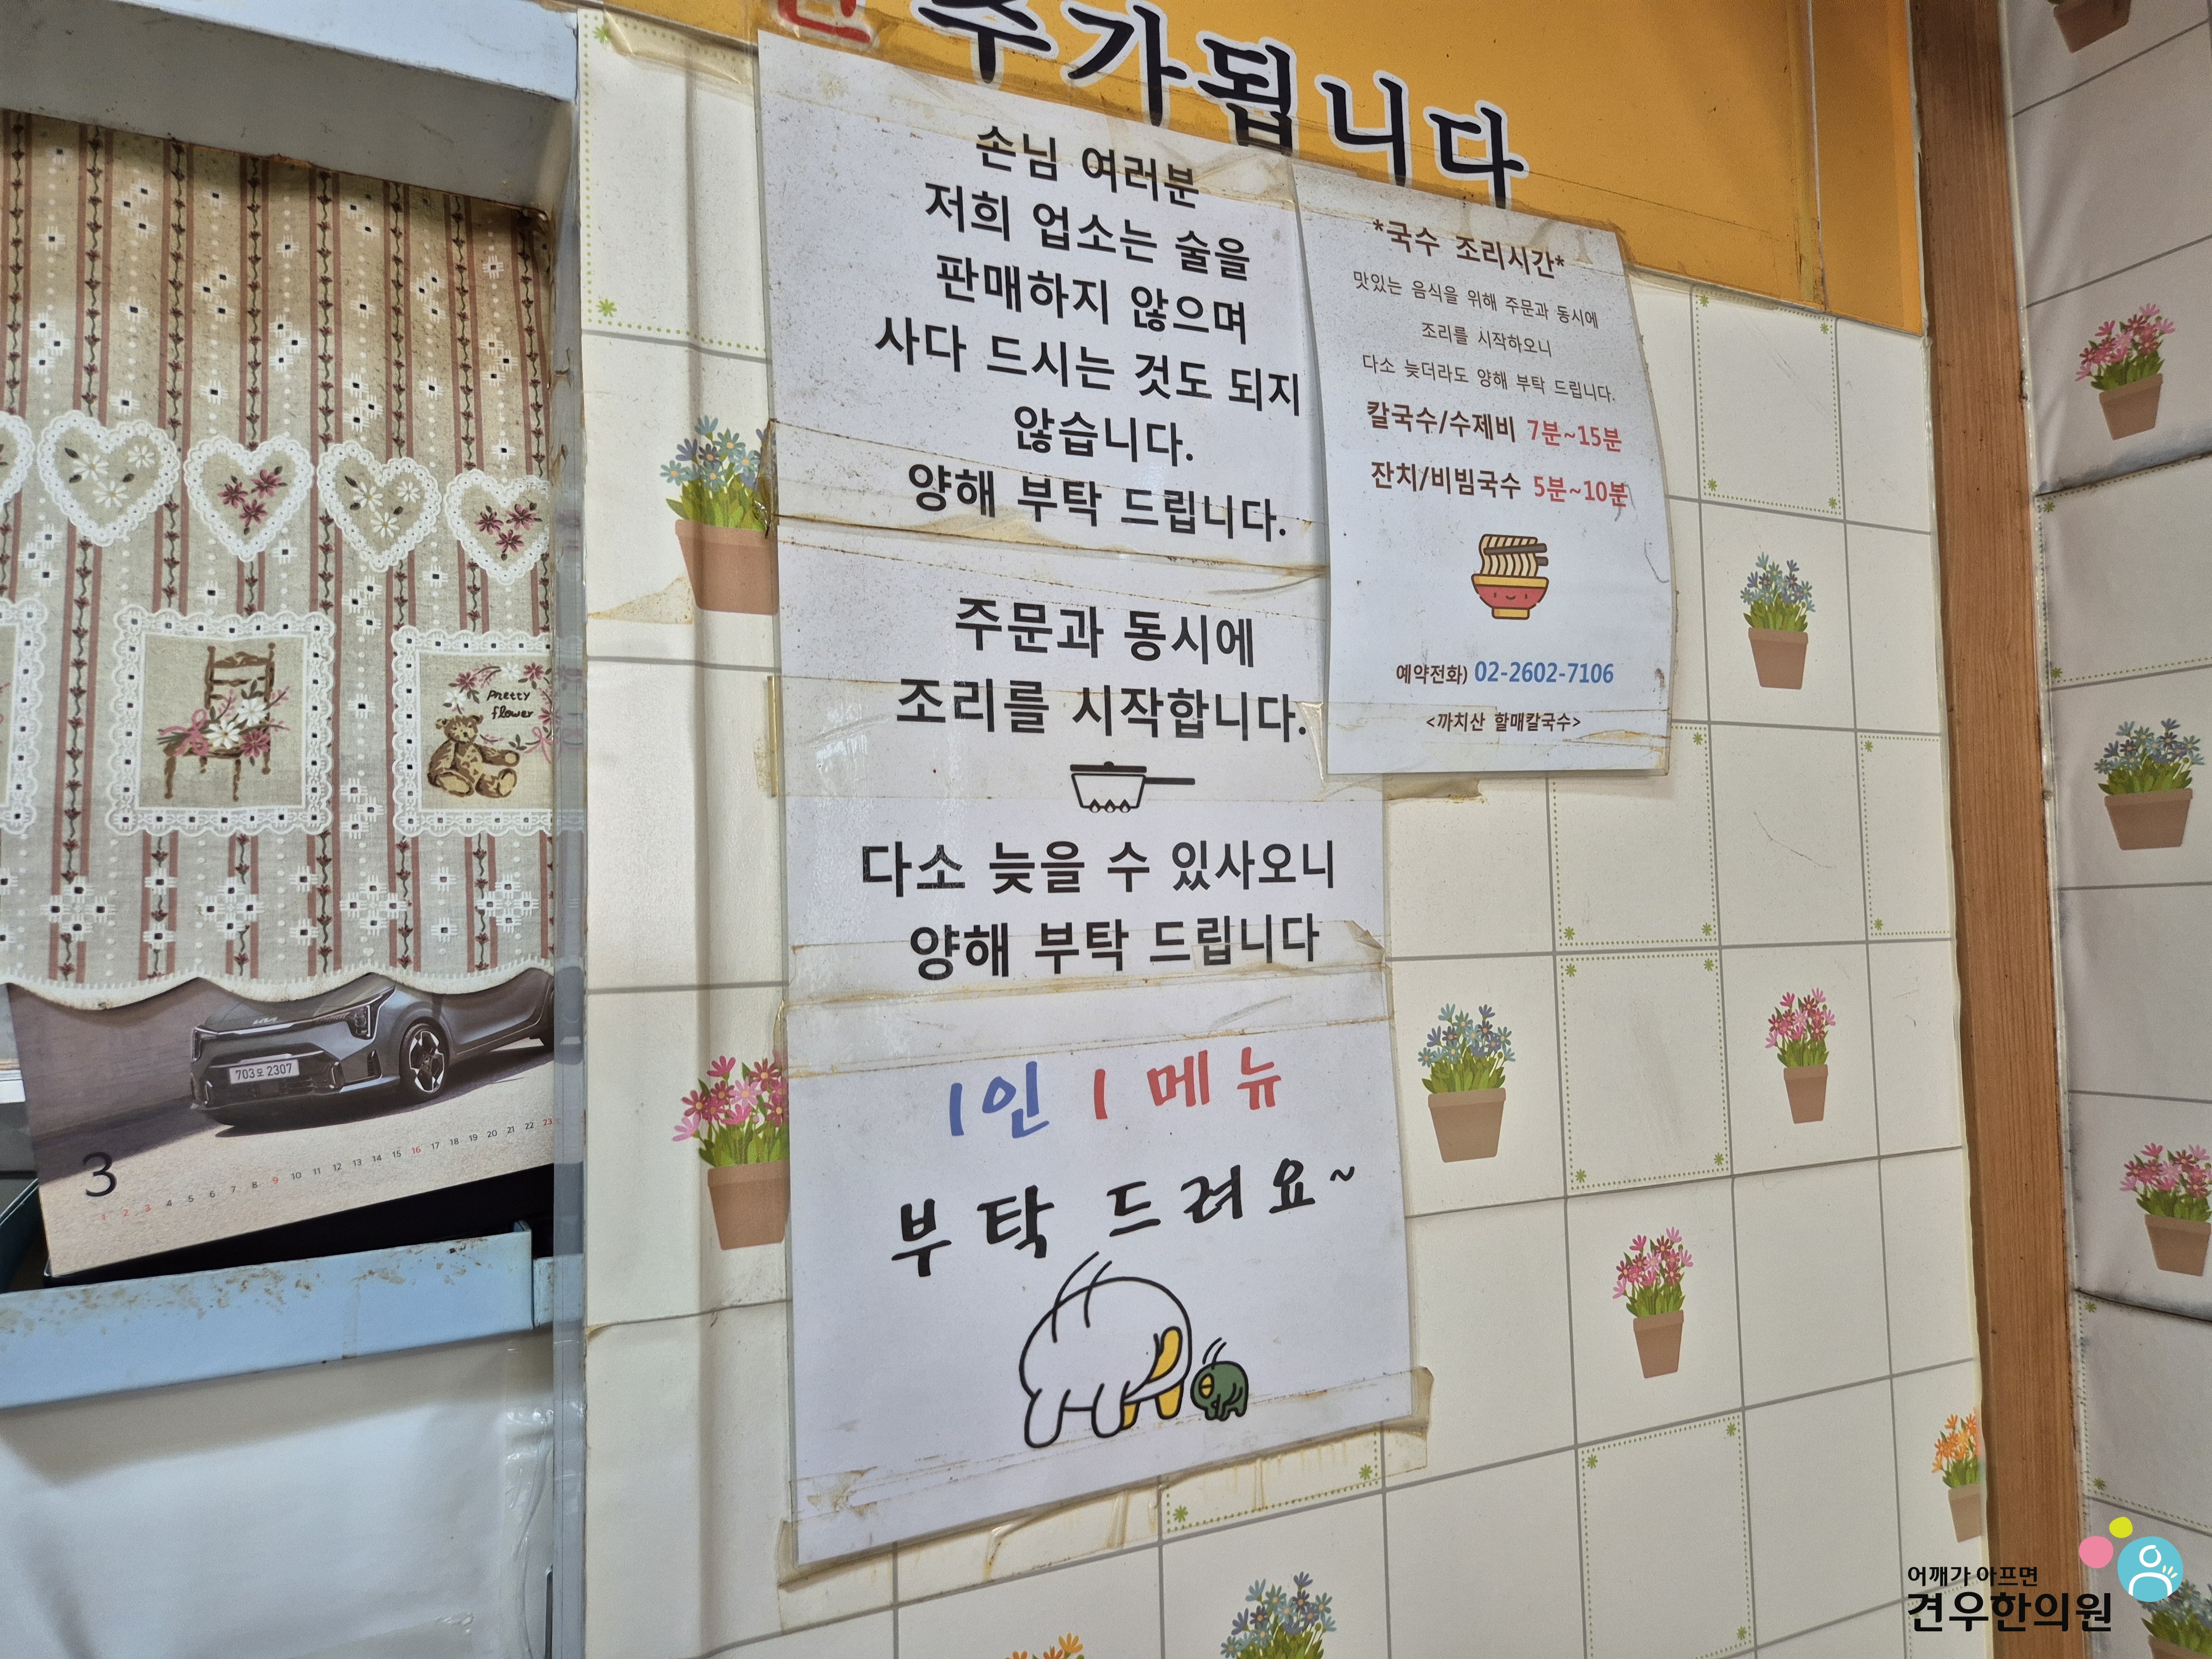 추가됩니다
손님 여러분
저희 업소는 술을
판매하지 않으며
사다 드시는 것도 되지
않습니다.
양해 부탁 드립니다.
주문과 동시에
조리를 시작합니다.
다소 늦을 수 있사오니
양해 부탁 드립니다
1인 1 메뉴
부탁 드려요~
*국수 조리시간*
맛있는 음식을 위해 주문과 동시에
조리를 시작하오니
다소 늦더라도 양해 부탁 드립니다.
칼국수/수제비 7분~15분
잔치/비빔국수 5분~10분
예약전화) 02-2602-7106
<까치산 할매칼국수>
Pretty
flower
703오 2307
3
1 2 3 4 5 6 7 8 9 10 11 12 13 14 15 16 17 18 19 20 21 22 23
어깨가 아프면
견우한의원